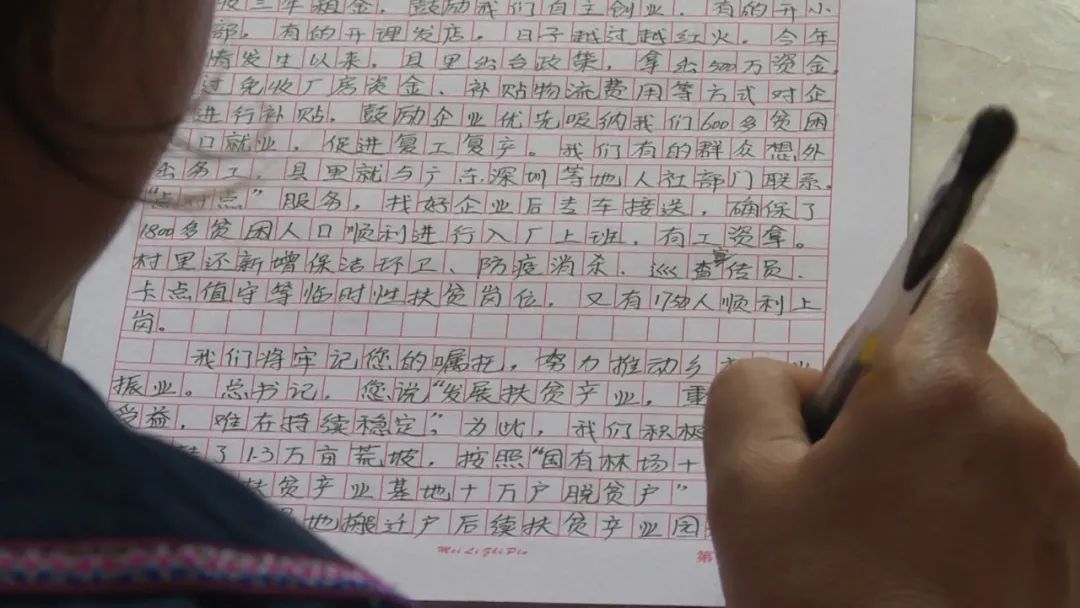 三年租金,鼓励我们自主创业,有的开小
部,有的开理发店,日子越过越红火。今年
发生以来,县里出台政策,拿出500万资金,
过免收厂房资金、补贴物流费用等方式对企
进行补贴,鼓励企业优先吸纳我们600多贫困
口就业,促进复工复产。我们有的群众想外
出务工,县里就与广东深圳等地人社部门联系,
点”服务,找好企业后专车接送,确保了
1800多贫困人口顺利进行入厂上班,有工资拿。
村里还新增保洁环卫、防疫消杀、巡查宣传员、
卡点值守等临时性扶贫岗位,又有1758人顺利上
岗。
我们将牢记您的嘱托,努力推动乡
振业。总书记,您说“发展扶贫产业,重
受益,难在持续稳定”,为此,我们积极
了1.3万亩荒坡,按照“国有林场十
扶贫产业基地十万户脱贫户”
地搬迁户后续扶贫产业园
Mei Li Zhi Pin
第